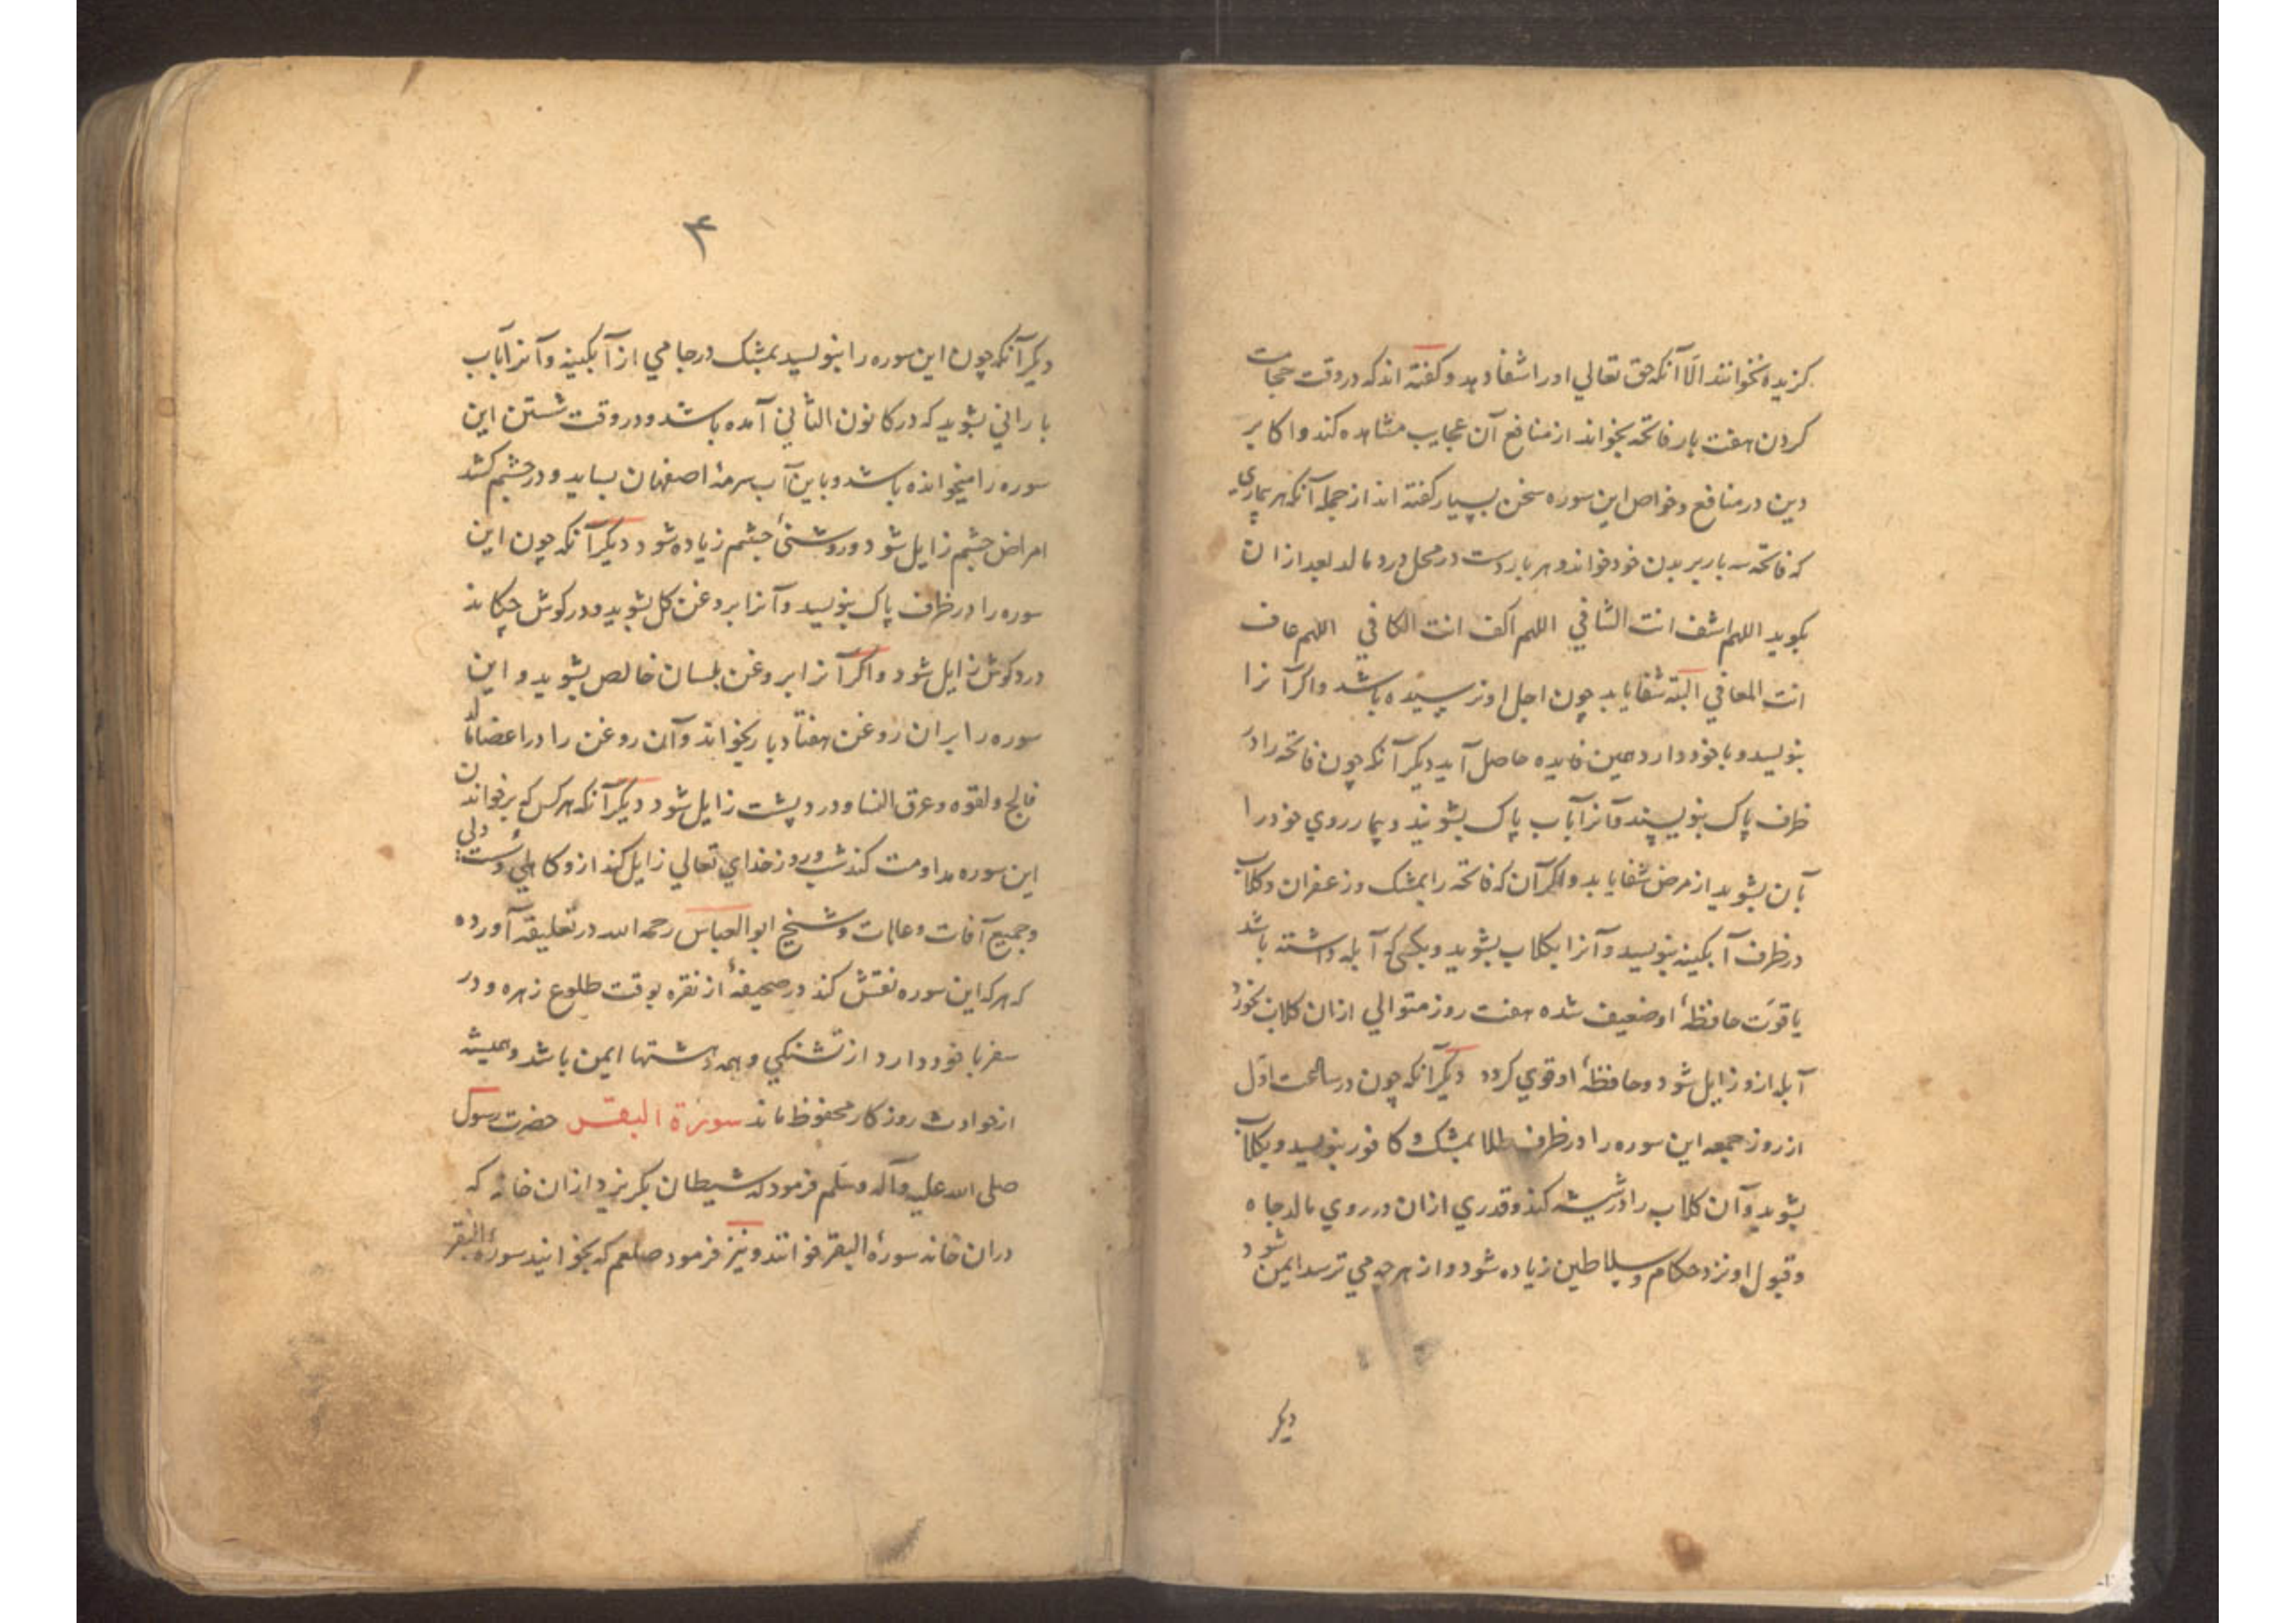 کزیده نخوانند الّا آنکه حق تعالی او را شفا دهد و کفته اند که در وقت حجامت
کردن هفت بار فاتحه بخواند از منافع آن عجایب مشاهده کند و اکابر
دین در منافع و خواص این سوره سخن بسیار کفته اند از جمله آنکه هر بیماری
که فاتحه سه بار بر بدن خود خواند و هر بار دست در محل درد مالد بعد از ان
بکوید اللهم اشف انت الشافی اللهم اکف انت الکافی اللهم عاف
انت المعافی البته شفا یابد چون اجل او نرسیده باشد و اکر آنرا
بنویسد و با خود دارد همین فایده حاصل آید دیکر آنکه چون فاتحه را در
ظرف پاک بنویسند و آنرا بآب پاک بشویند و بیمار روی خود را
بآن بشوید از مرض شفا یابد و اکر آن که فاتحه را بمشک و زعفران و کلاب
در ظرف آبکینه بنویسد و آنرا بکلاب بشوید و بکسی که آبله داشته باشد
یا قوّت حافظهٔ او ضعیف شده هفت روز متوالی ازان کلاب بخورد
آبله ازو زایل شود و حافظهٔ او قوی کردد دیکر آنکه چون در ساعت اوّل
از روز جمعه این سوره را در ظرف طلا بمشک و کافور بنویسد و بکلاب
بشوید و آن کلاب را در شیشه کند و قدری ازان در روی مالد جاه
و قبول او نزد حکام و سلاطین زیاده شود و از هر چه می ترسد ایمن شود
دیکر
۴
دیکر آنکه چون این سوره را بنویسد بمشک در جامی از آبکینه و آنرا بآب
بارانی بشوید که در کانون الثانی آمده باشد و در وقت شستن این
سوره را میخوانده باشد و باین آب سرمهٔ اصفهان بساید و در چشم کشد
امراض چشم زایل شود و روشنیٔ چشم زیاده شود دیکر آنکه چون این
سوره را در ظرف پاک بنویسد و آنرا بروغن کل بشوید و در کوش چکاند
درد کوش زایل شود و اکر آنرا بروغن بلسان خالص بشوید و این
سوره را بران روغن هفتاد بار بخواند و آن روغن را در اعضا مالد
فالج و لقوه و عرق النسا و درد پشت زایل شود دیکر آنکه هر کس که بر خواندن
این سوره مداومت کند شب و روز خدای تعالی زایل کند ازو کاهلی و سستی
و جمیع آفات و عاهات و شیخ ابو العباس رحمه الله در تعلیقه آورده
که هر که این سوره نقش کند در صحیفهٔ از نقره بوقت طلوع زهره و در
سفر با خود دارد از تشنکی و همه ایمن باشد و همیشه
از حوادث روزکار محفوظ ماند سورة البقر حضرت رسول
صلی الله علیه و آله وسلّم فرمود که شیطان بکریزد ازان خانه که
دران خانه سورهٔ البقر خوانند و نیز فرمود صلعم که بخوانید سورهٔ البقر